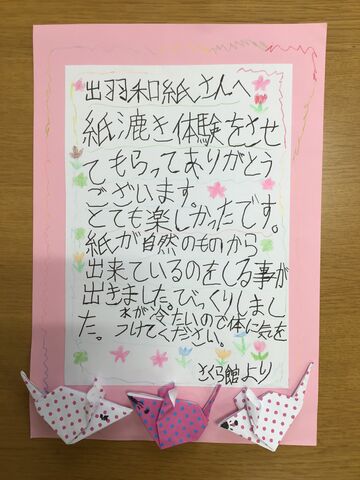 出羽和紙さんへ
紙漉き体験をさせ
てもらってありがとう
ございます。
とても楽しかったです。
紙が自然のものから
出来ているのをしる事が
出きました。びっくりしまし
た。水が冷たいので体に気を
つけてください。
さくら館より